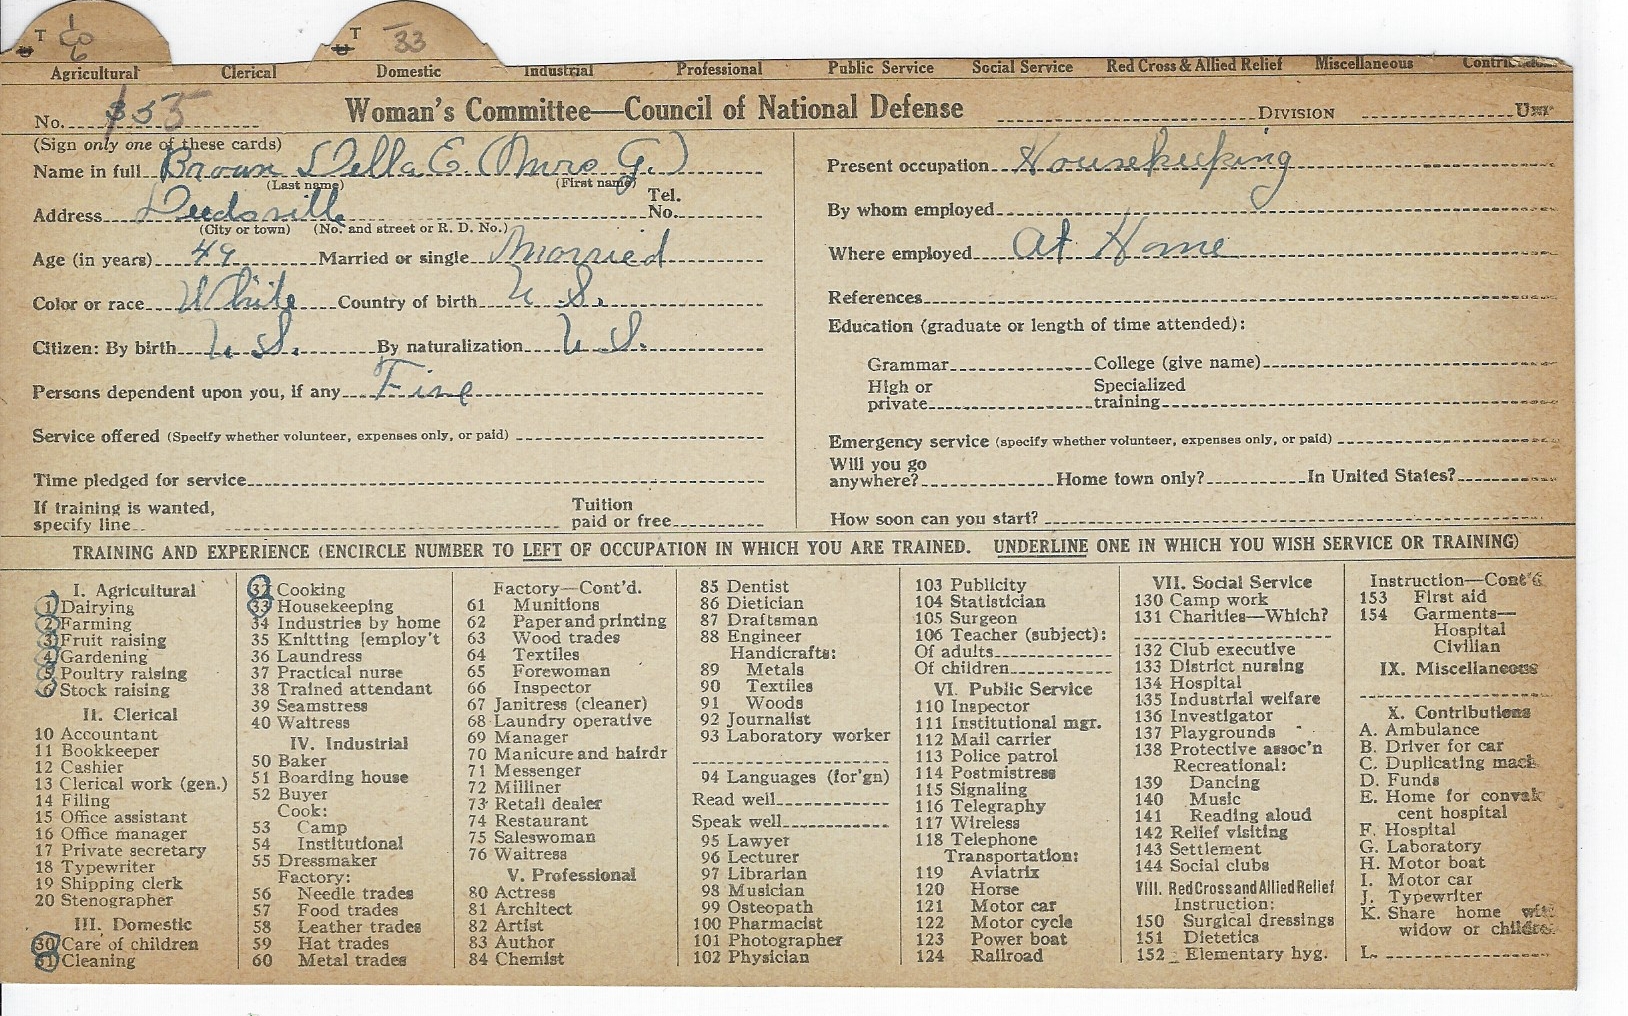 T 1 to 6
T 33
Agricultural Clerical Domestic Industrial Professional Public Service Social Service Red Cross & Allied Relief Miscellaneous
No.
Woman's Committee—Council of National Defense
DIVISION
(Sign only one of these cards)
Name in full Brown Della E. (Mrs G.)
(Last name) (First name)
Address Deedsville Tel. No.
(City or town) (No. and street or R. D. No.)
Age (in years) 49 Married or single Married
Color or race White Country of birth U. S.
Citizen: By birth U. S. By naturalization U S.
Persons dependent upon you, if any Five
Service offered (Specify whether volunteer, expenses only, or paid)
Time pledged for service
If training is wanted, specify line Tuition paid or free
Present occupation Housekeeping
By whom employed
Where employed At Home
References
Education (graduate or length of time attended):
Grammar College (give name)
High or private Specialized training
Emergency service (specify whether volunteer, expenses only, or paid)
Will you go anywhere? Home town only? In United States?
How soon can you start?
TRAINING AND EXPERIENCE (ENCIRCLE NUMBER TO LEFT OF OCCUPATION IN WHICH YOU ARE TRAINED. UNDERLINE ONE IN WHICH YOU WISH SERVICE OR TRAINING)
I. Agricultural
1 Dairying
2 Farming
3 Fruit raising
4 Gardening
5 Poultry raising
6 Stock raising
II. Clerical
10 Accountant
11 Bookkeeper
12 Cashier
13 Clerical work (gen.)
14 Filing
15 Office assistant
16 Office manager
17 Private secretary
18 Typewriter
19 Shipping clerk
20 Stenographer
III. Domestic
30 Care of children
31 Cleaning
32 Cooking
33 Housekeeping
34 Industries by home
35 Knitting [employ't
36 Laundress
37 Practical nurse
38 Trained attendant
39 Seamstress
40 Waitress
IV. Industrial
50 Baker
51 Boarding house
52 Buyer
Cook:
53 Camp
54 Institutional
55 Dressmaker
Factory:
56 Needle trades
57 Food trades
58 Leather trades
59 Hat trades
60 Metal trades
Factory—Cont'd.
61 Munitions
62 Paper and printing
63 Wood trades
64 Textiles
65 Forewoman
66 Inspector
67 Janitress (cleaner)
68 Laundry operative
69 Manager
70 Manicure and hairdr
71 Messenger
72 Milliner
73 Retail dealer
74 Restaurant
75 Saleswoman
76 Waitress
V. Professional
80 Actress
81 Architect
82 Artist
83 Author
84 Chemist
85 Dentist
86 Dietician
87 Draftsman
88 Engineer
Handicrafts:
89 Metals
90 Textiles
91 Woods
92 Journalist
93 Laboratory worker
94 Languages (for'gn)
Read well
Speak well
95 Lawyer
96 Lecturer
97 Librarian
98 Musician
99 Osteopath
100 Pharmacist
101 Photographer
102 Physician
103 Publicity
104 Statistician
105 Surgeon
106 Teacher (subject):
Of adults
Of children
VI. Public Service
110 Inspector
111 Institutional mgr.
112 Mail carrier
113 Police patrol
114 Postmistress
115 Signaling
116 Telegraphy
117 Wireless
118 Telephone
Transportation:
119 Aviatrix
120 Horse
121 Motor car
122 Motor cycle
123 Power boat
124 Railroad
VII. Social Service
130 Camp work
131 Charities—Which?
132 Club executive
133 District nursing
134 Hospital
135 Industrial welfare
136 Investigator
137 Playgrounds
138 Protective assoc'n
Recreational:
139 Dancing
140 Music
141 Reading aloud
142 Relief visiting
143 Settlement
144 Social clubs
VIII. Red Cross and Allied Relief
Instruction:
150 Surgical dressings
151 Dietetics
152 Elementary hyg.
Instruction—Cont'd.
153 First aid
154 Garments—
Hospital
Civilian
IX. Miscellaneous
X. Contributions
A. Ambulance
B. Driver for car
C. Duplicating mach.
D. Funds
E. Home for convalescent hospital
F. Hospital
G. Laboratory
H. Motor boat
I. Motor car
J. Typewriter
K. Share home with
widow or children
L.